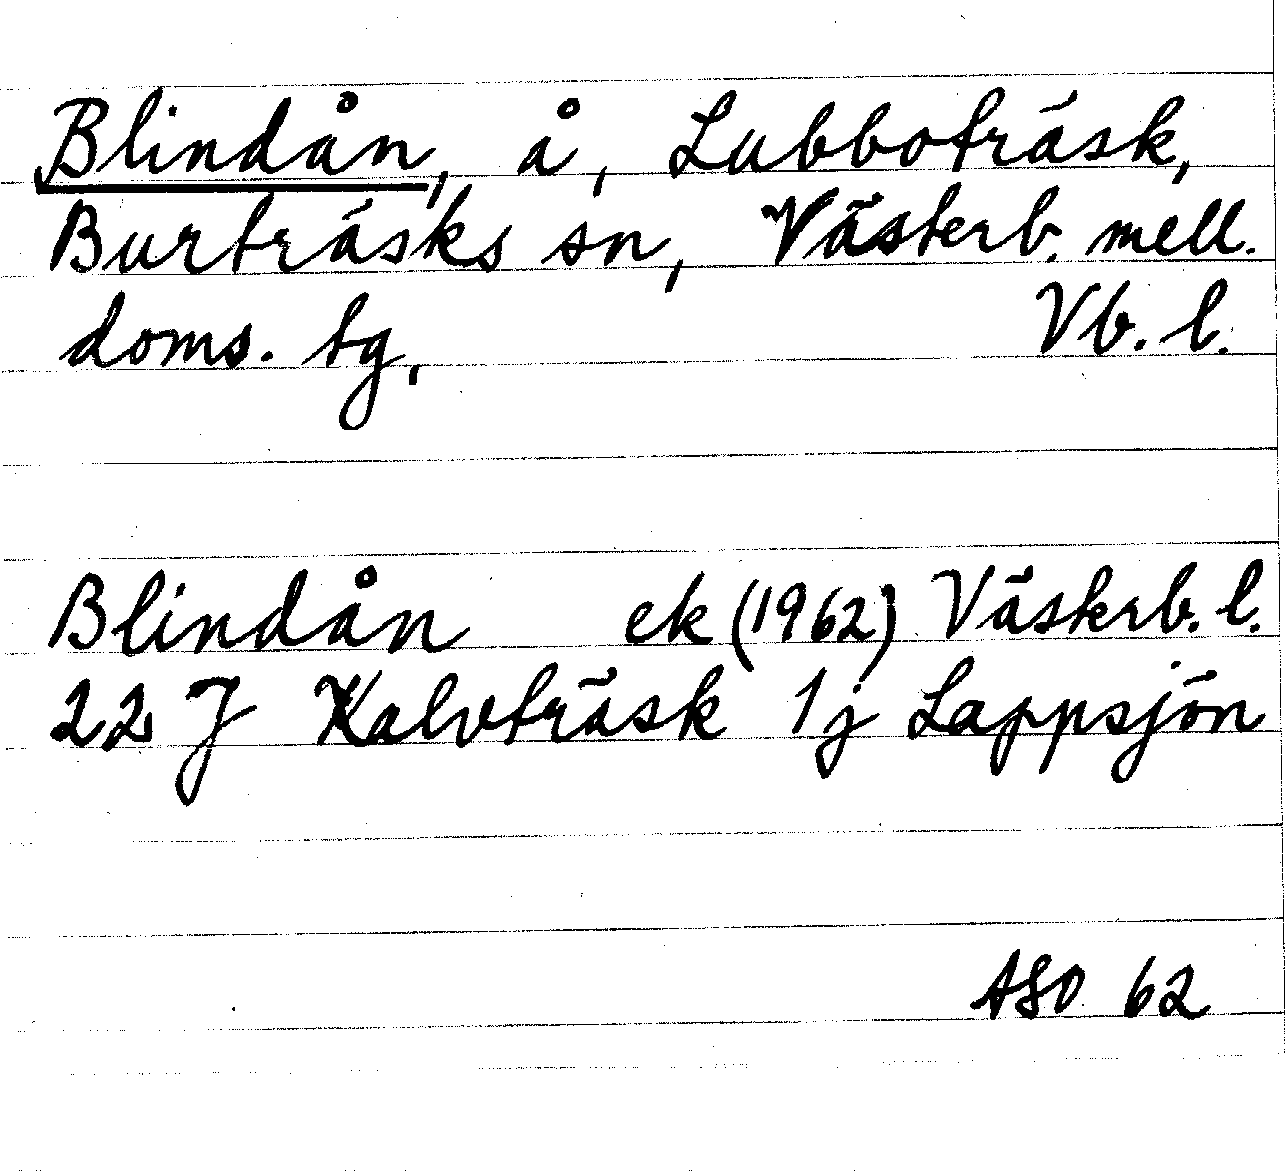 Blindån, å, Lubboträsk,
Burträsks sn, Västerb. mell.
doms. tg, Vb. l.
Blindån ek (1962) Västerb. l.
22 J Kalvträsk 1 j Lappsjön
ASO 62